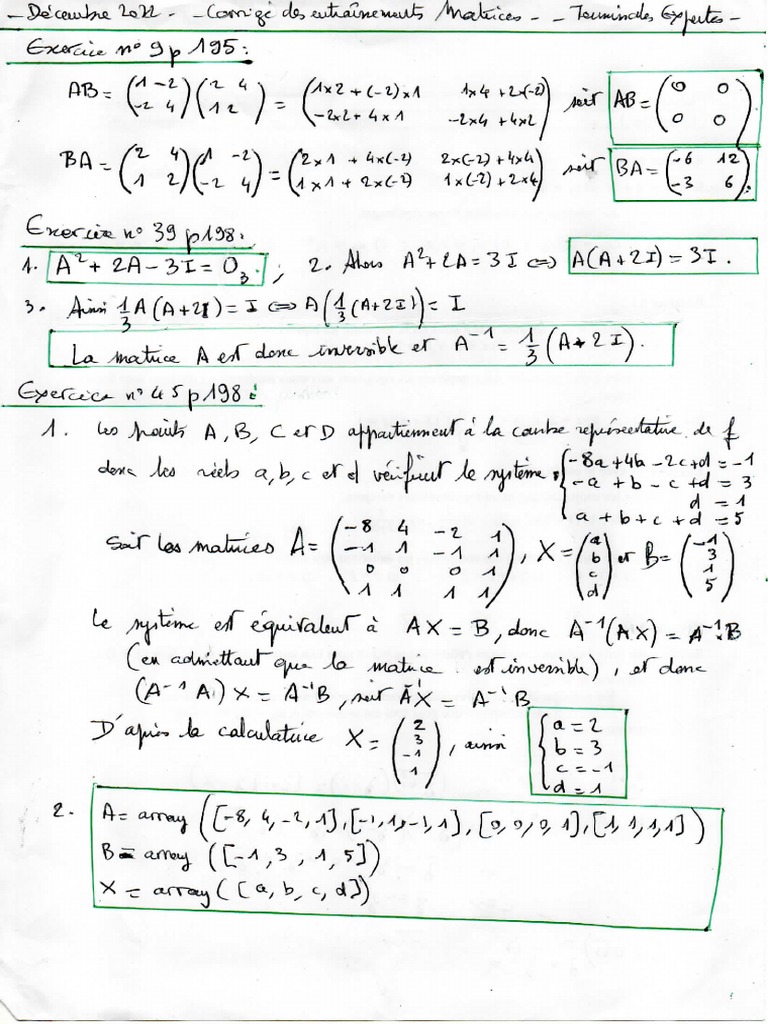 - Décembre 2022 - - Corrigé des entraînements Matrices - - Terminales Expertes -
Exercice n° 9 p 195 :
AB = (1 -2 ; -2 4) (2 4 ; 1 2) = (1×2 + (-2)×1 1×4 + 2×(-2) ; -2×2 + 4×1 -2×4 + 4×2) soit AB = (0 0 ; 0 0)
BA = (2 4 ; 1 2) (1 -2 ; -2 4) = (2×1 + 4×(-2) 2×(-2) + 4×4 ; 1×1 + 2×(-2) 1×(-2) + 2×4) soit BA = (-6 12 ; -3 6).
Exercice n° 39 p 198 :
1. A² + 2A - 3I = O₃. ; 2. Alors A² + 2A = 3I ⇔ A(A + 2I) = 3I.
3. Ainsi 1/3 A (A + 2I) = I ⇔ A(1/3 (A + 2I)) = I
La matrice A est donc inversible et A⁻¹ = 1/3 (A + 2I).
Exercice n° 45 p 198 :
1. Les points A, B, C et D appartiennent à la courbe représentative de f
donc les réels a, b, c et d vérifient le système : { -8a + 4b - 2c + d = -1
-a + b - c + d = 3
d = 1
a + b + c + d = 5
Soit les matrices A = (-8 4 -2 1 ; -1 1 -1 1 ; 0 0 0 1 ; 1 1 1 1), X = (a ; b ; c ; d) et B = (-1 ; 3 ; 1 ; 5)
Le système est équivalent à AX = B, donc A⁻¹(AX) = A⁻¹B
(en admettant que la matrice est inversible), et donc
(A⁻¹ A) X = A⁻¹B, soit X = A⁻¹B
D'après la calculatrice X = (2 ; 3 ; -1 ; 1), ainsi { a = 2
b = 3
c = -1
d = 1
2. A = array ([-8, 4, -2, 1], [-1, 1, -1, 1], [0, 0, 0, 1], [1, 1, 1, 1])
B = array ([-1, 3, 1, 5])
X = array ([a, b, c, d])